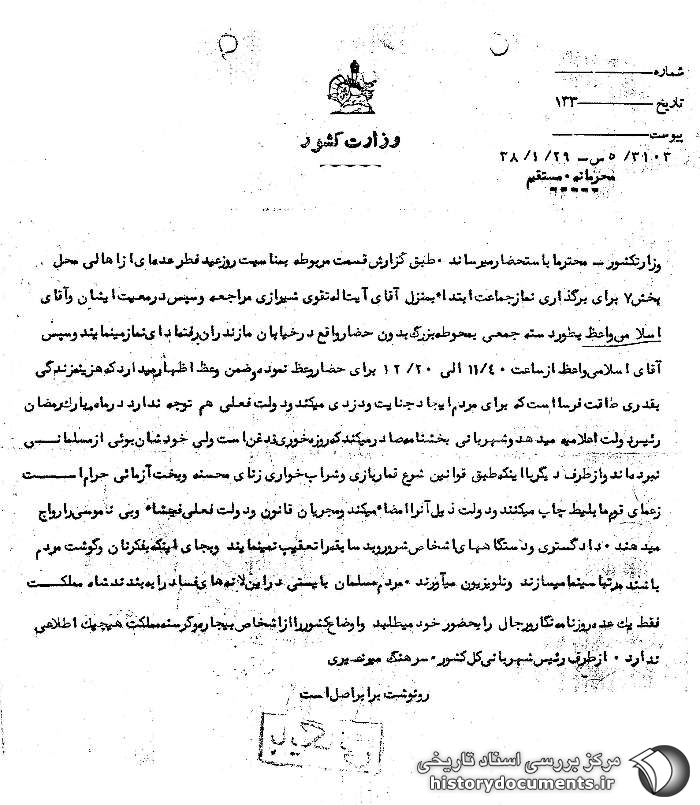 شماره
تاریخ ۱۳۳
پیوست
۳۱۰۳/ ۵ س – ۲۹/ ۱/ ۳۸
محرمانه ۰ مستقیم
وزارت کشور
وزارتکشور – محترما باستحضار میرساند ۰ طبق گزارش قسمت مربوطه بمناسبت روز عید فطر عده‌ای از اهالی محل
بخش ۷ برای برگذاری نماز جماعت ابتداء بمنزل آقای آیت اله تقوی شیرازی مراجعه و سپس در معیت ایشان و آقای
اسلامی واعظ بطور دسته جمعی بمحوطه بزرگ بدون حصار واقع در خیابان مازندران رفته ادای نماز مینمایند و سپس
آقای اسلامی واعظ از ساعت ۱۱/۴۰ الی ۱۲/۲۰ برای حضار وعظ نموده و ضمن وعظ اظهار میدارد که هزینه زندگی
بقدری طاقت فرسا است که برای مردم ایجاد جنایت و دزدی میکند و دولت فعلی هم توجه ندارد در ماه مبارک رمضان
رئیس دولت اعلامیه میدهد و شهربانی بخشنامه صادر میکند که روزه خوری قدغن است ولی خودشان بوئی از مسلمانی
نبرده‌اند و از طرف دیگر با اینکه طبق قوانین شرع قماربازی و شراب خواری زنای محسنه و بخت آزمائی حرام است
زعمای قوم ما بلیط چاپ میکنند و دولت ذیل آنرا امضاء میکند و مجریان قانون و دولت فعلی فحشاء و بی ناموسی را رواج
میدهند ۰ دادگستری و دستگاههای اشخاص شرور و بد سابقه را تعقیب نمینمایند و بجای اینکه بفکر نان و گوشت مردم
باشند مرتبا سینما میسازند و تلویزیون میآورند ۰ مردم مسلمان بایستی در این لانه‌های فساد را به بندند شاه مملکت
فقط یک عده روزنامه نگار و رجال را بحضور خود میطلبد و اوضاع کشور را از اشخاص بیچاره و گرسنه مملکت هیچیک اطلاعی
ندارد ۰ از طرف رئیس شهربانی کل کشور ۰ سرهنگ مبصری
رونوشت برابر اصل است
بایگانی
مرکز بررسی اسناد تاریخی
historydocuments.ir